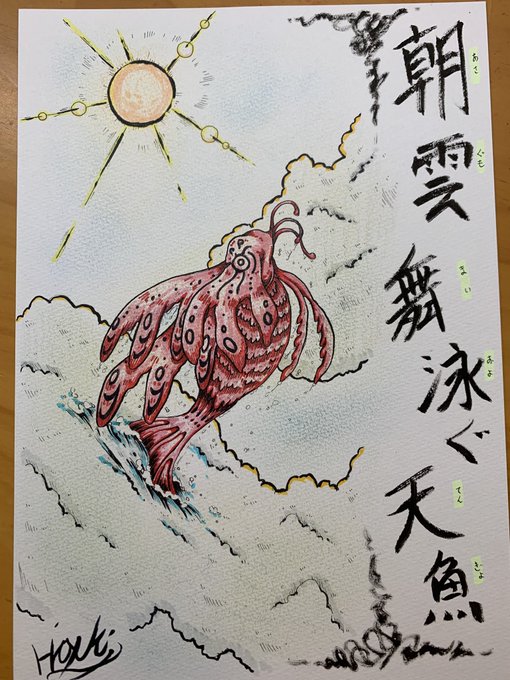 朝雲舞泳ぐ天魚
あさ
ぐも
まい
およ
てん
ぎょ